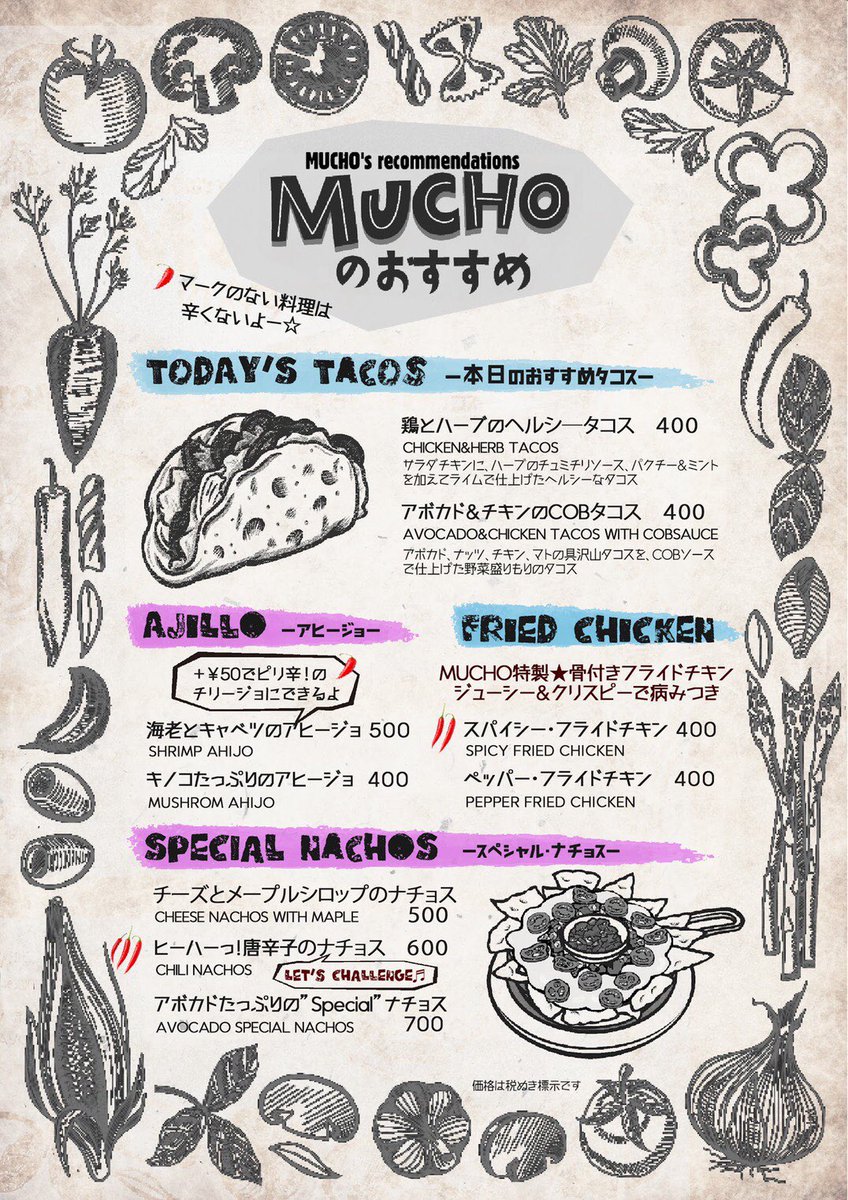 MUCHO's recommendations
MUCHO
のおすすめ
マークのない料理は
辛くないよー☆
TODAY'S TACOS ー本日のおすすめタコスー
鶏とハーブのヘルシ―タコス 400
CHICKEN&HERB TACOS
サラダチキンに、ハーブのチュミチリソース、パクチー&ミント
を加えてライムで仕上げたヘルシーなタコス
アボカド&チキンのCOBタコス 400
AVOCADO&CHICKEN TACOS WITH COBSAUCE
アボカド、ナッツ、チキン、マトの具沢山タコスを、COBソース
で仕上げた野菜盛りもりのタコス
AJILLO ーアヒージョー
+¥50でピリ辛!の
チリージョにできるよ
海老とキャベツのアヒージョ 500
SHRIMP AHIJO
キノコたっぷりのアヒージョ 400
MUSHROM AHIJO
FRIED CHICKEN
MUCHO特製★骨付きフライドチキン
ジューシー&クリスピーで病みつき
スパイシー・フライドチキン 400
SPICY FRIED CHICKEN
ペッパー・フライドチキン 400
PEPPER FRIED CHICKEN
SPECIAL NACHOS ースペシャル・ナチョスー
チーズとメープルシロップのナチョス
CHEESE NACHOS WITH MAPLE 500
ヒーハーっ!唐辛子のナチョス 600
CHILI NACHOS
LET'S CHALLENGE♬
アボカドたっぷりの"Special"ナチョス
AVOCADO SPECIAL NACHOS 700
価格は税ぬき標示です